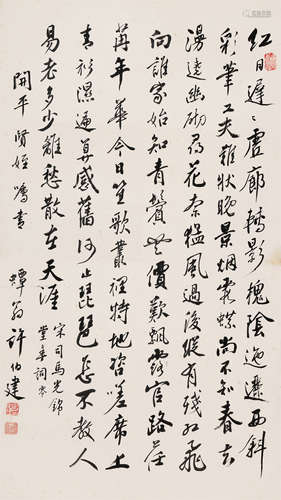 红日遲遲虚廊轉影槐陰迤邐西斜
彩筆工夫難狀晚景烟霞蝶尚不知春去
漫遶幽砌尋花奈猛風過後縱有残红飛
向誰家始知青鬢無價歎飄零官路荏
苒年華今日笙歌叢裡特地咨嗟席上
青衫濕遍算感舊何止琵琶怎不教人
易老多少離愁散在天涯
宋司馬光錦
堂春詞
開平贤姪嘱書
蟫翁许伯建